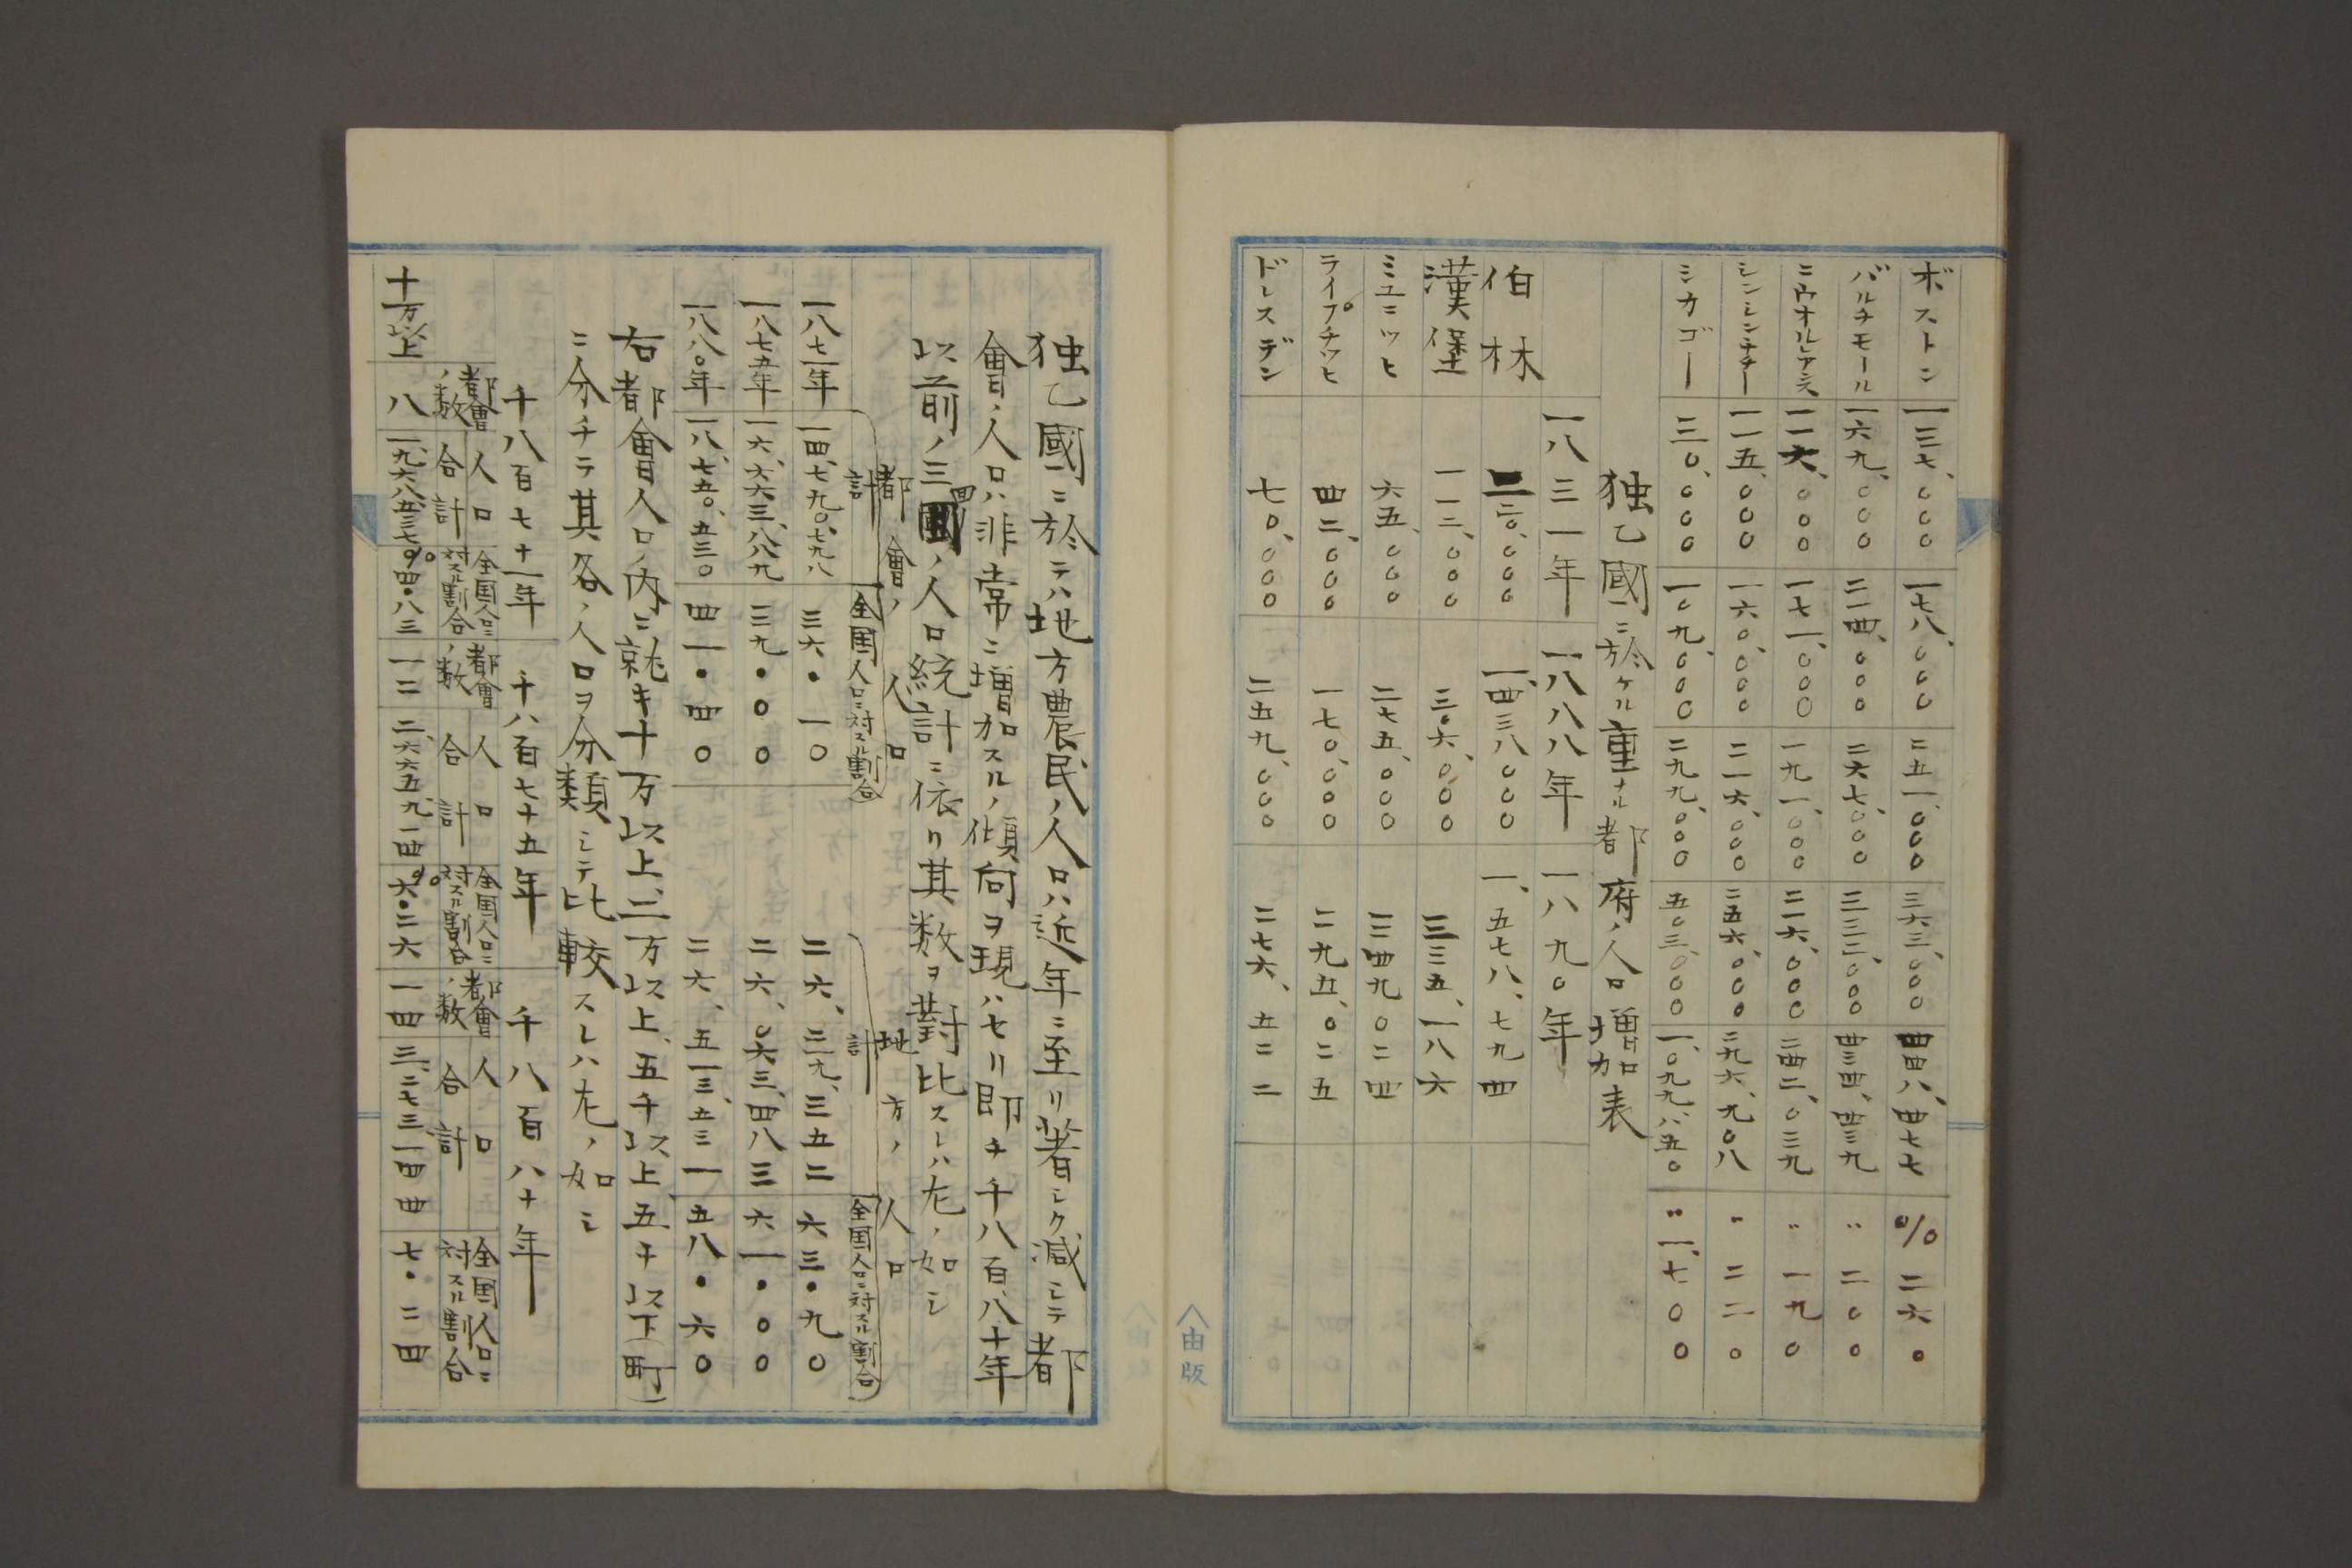 ボストン 一三七、〇〇〇 一七八、〇〇〇 二五一、〇〇〇 三六三、〇〇〇 四四八、四七七 % 二六〇
バルチモール 一六九、〇〇〇 二一四、〇〇〇 二六七、〇〇〇 三三二、〇〇〇 四三四、四三九 〃 二〇〇
ニウオルレアンス 一一六、〇〇〇 一七一、〇〇〇 一九一、〇〇〇 二一六、〇〇〇 二四二、〇三九 〃 一九〇
シンシンナチー 一一五、〇〇〇 一六〇、〇〇〇 二一六、〇〇〇 二五六、〇〇〇 二九六、九〇八 〃 二二〇
シカゴー 三〇、〇〇〇 一〇九、〇〇〇 二九九、〇〇〇 五〇三、〇〇〇 一、〇九九、八五〇 〃 一、七〇〇
独乙國ニ於ケル重ナル都府ノ人口増加表
一八三一年 一八八八年 一八九〇年
伯林 二三〇、〇〇〇 一、四三八、〇〇〇 一、五七八、七九四
漢堡 一一二、〇〇〇 三〇六、〇〇〇 三三五、一八六
ミユニッヒ 六五、〇〇〇 二七五、〇〇〇 三四九〇二四
ライプチッヒ 四二、〇〇〇 一七〇、〇〇〇 二九五、〇二五
ドレスデン 七〇、〇〇〇 二五九、〇〇〇 二七六、五二二
由版
独乙國ニ於テハ地方農民ノ人口ハ近年ニ至リ著シク減シテ都
會ノ人口ハ非常ニ増加スルノ傾向ヲ現ハセリ即チ千八百八十年
以前ノ三回ノ人口統計ニ依リ其数ヲ對比スレハ左ノ如シ
都會ノ人口 地方ノ人口
計 全国人口ニ対スル割合 計 全国人口ニ対スル割合
一八七一年 一四、七九〇、七九八 三六・一〇 二六、二一九、三五二 六三・九〇
一八七五年 一六、六六三、八八九 三九・〇〇 二六、〇六三、四八三 六一・〇〇
一八八〇年 一八、七五〇、五三〇 四一・四〇 二六、五一三、五三一 五八・六〇
右都會人口ノ内ニ就キ十万以上、二万以上、五千以上五千以下(町)
ニ分チテ其各ノ人口ヲ分類シテ比較スレハ左ノ如シ
千八百七十一年 千八百七十五年 千八百八十年
都會ノ数 人口合計 全国人口ニ対スル割合 都會ノ数 人口合計 全国人口ニ対スル割合 都會ノ数 人口合計 全国人口ニ対スル割合
十万以上 八 一、九六八、五三七 % 四・八三 一二 二、六六五、九一四 % 六・二六 一四 三、二七三一四四 七・二四